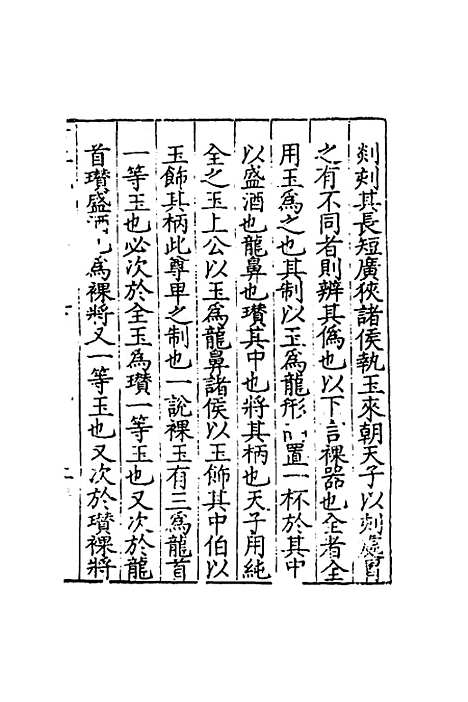 剡剡其長短廣狹諸侯執玉來朝天子以刺
之有不同者則辨其僞也以下言祼器也全者全
用玉爲之也其制以玉爲龍形置一杯於其中
以盛酒也龍鼻也瓚其中也將其柄也天子用純
全之玉上公以玉爲龍鼻諸侯以玉飾其中伯以
玉飾其柄此尊卑之制也一說祼玉有三爲龍首
一等玉也必次於全玉爲瓚一等玉也又次於龍
首瓚盛酒爲祼將又一等玉也又次於瓚祼將